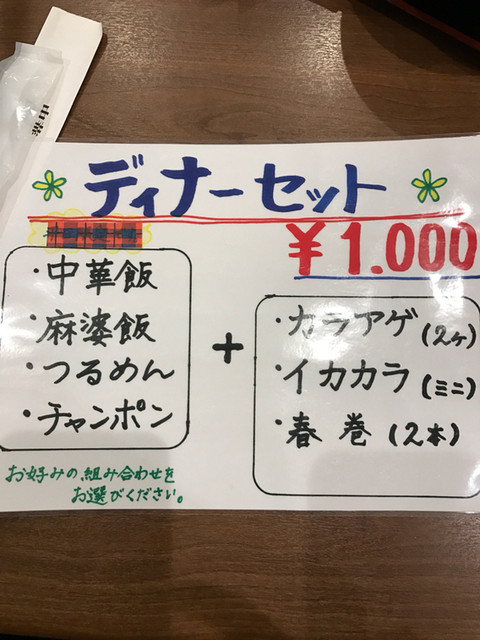 ディナーセット
¥1.000
・中華飯
・麻婆飯
・つるめん
・チャンポン
+
・カラアゲ(2ヶ)
・イカカラ(ミニ)
・春巻(2本)
お好みの組み合わせを
お選びください。